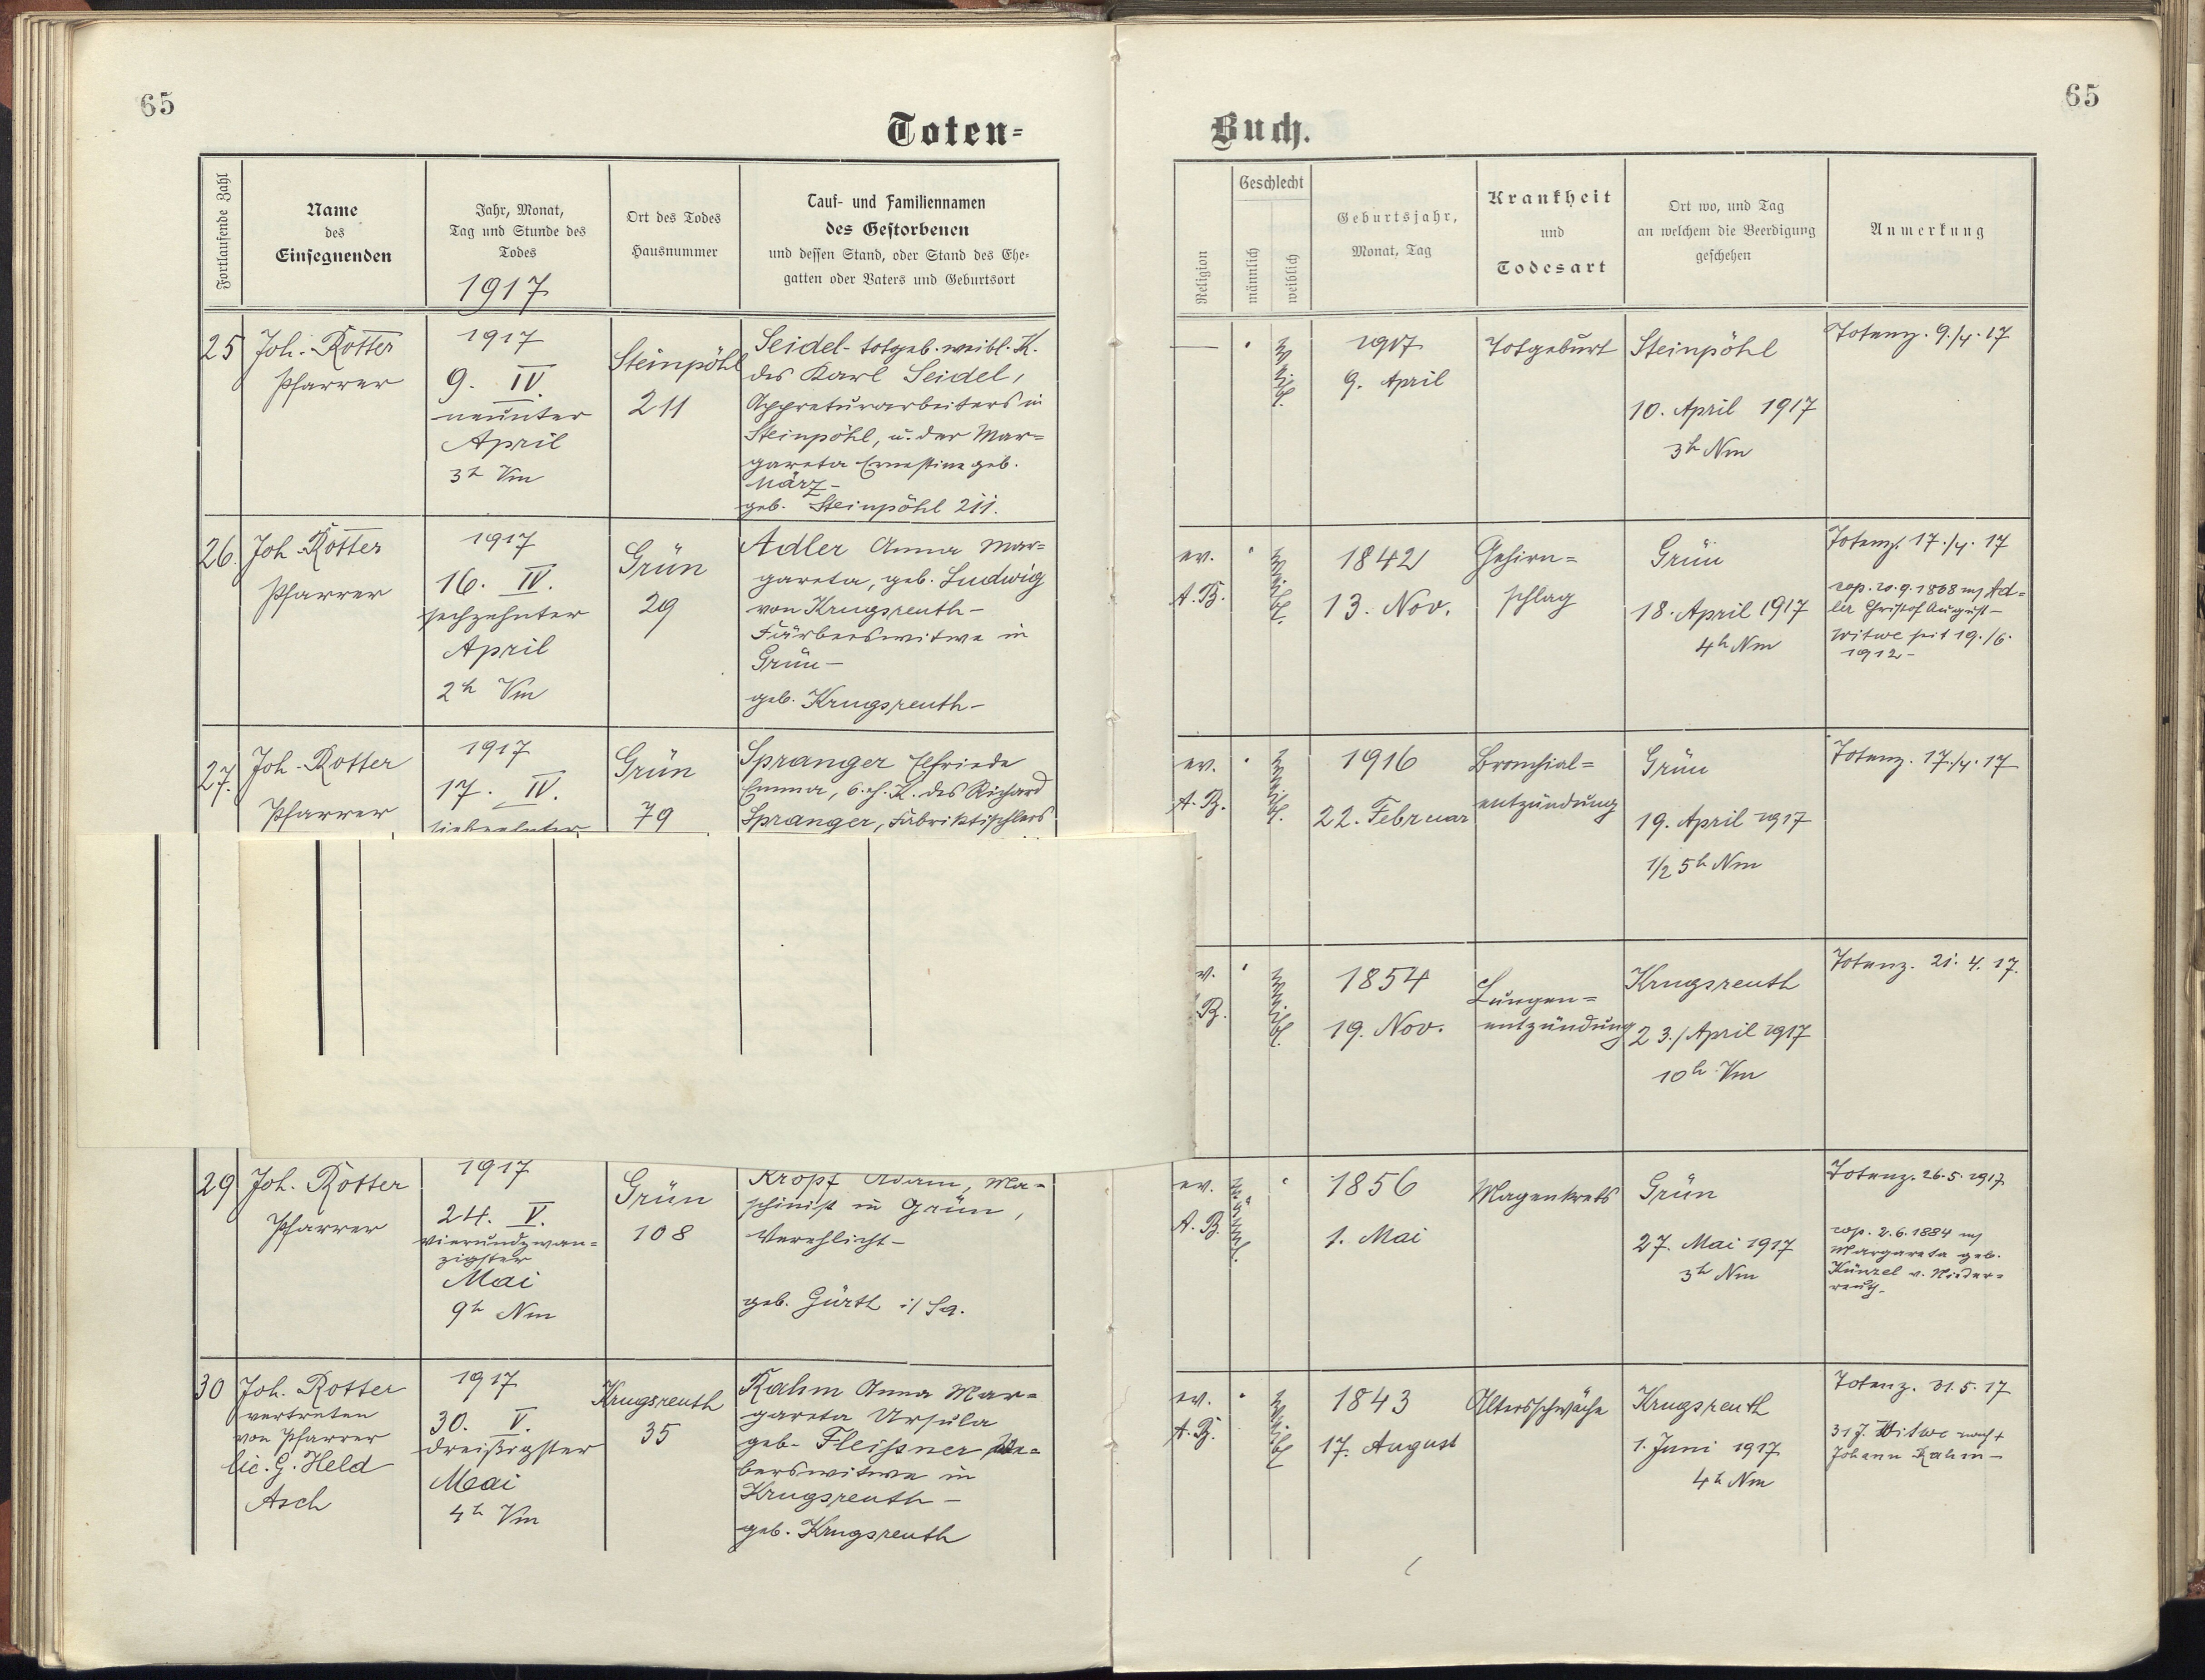 65
65
Toten-
Buch.
Fortlaufende Zahl
Name
des
Einsegnenden
Jahr, Monat,
Tag und Stunde des
Todes
1917
Ort des Todes
Hausnummer
Tauf- und Familiennamen
des Gestorbenen
und dessen Stand, oder Stand des Ehe-
gatten oder Vaters und Geburtsort
Religion
Geschlecht
männlich
weiblich
Geburtsjahr,
Monat, Tag
Krankheit
und
Todesart
Ort wo, und Tag
an welchem die Beerdigung
geschehen
Anmerkung
25
Joh. Rotter
Pfarrer
1917
9. IV.
neunter
April
3h Vm
Steinpöhl
211
Seidel- totgeb. weibl. K.
des Karl Seidel,
Appreturarbeiters in
Steinpöhl, u. der Mar=
gareta Ernestine geb.
März-
geb. Steinpöhl 211.
—
weibl.
1917
9. April
Totgeburt
Steinpöhl
10. April 1917
3h Nm
Totenz. 9./4. 17
26.
Joh. Rotter
Pfarrer
1917
16. IV.
sechzehnter
April
2h Vm
Grün
29
Adler Anna Mar=
gareta, geb. Ludwig
von Krugsreuth-
Färberswitwe in
Grün-
geb. Krugsreuth-
ev.
A.B.
weibl.
1842
13. Nov.
Gehirn=
schlag
Grün
18. April 1917
4h Nm
Totenz. 17./4. 17
cop. 20.9.1868 m/ Ad=
ler Christof August-
Witwe seit 19./6.
1912-
27.
Joh. Rotter
Pfarrer
1917
17. IV.
siebzehnter
Grün
79
Spranger Elfriede
Emma, 6. eh. K. des Richard
Spranger, Fabriktischlers
ev.
A.B.
weibl.
1916
22. Februar
Bronchial=
entzündung
Grün
19. April 1917
1/2 5h Nm
Totenz. 17./4. 17
v.
B.
weibl.
1854
19. Nov.
Lungen=
entzündung
Krugsreuth
23./April 1917
10h Vm
Totenz. 21. 4. 17.
29
Joh. Rotter
Pfarrer
1917
24. V.
vierundzwan=
zigster
Mai
9h Nm
Grün
108
Kropf Adam, Ma=
schinist in Grün,
Verehlicht-
geb. Gürth i/ Sa.
ev.
A.B.
männl.
1856
1. Mai
Magenkrebs
Grün
27. Mai 1917
3h Nm
Totenz. 26.5.1917
cop. 2.6.1884 m/
Margareta geb.
Künzel v. Nieder=
reuth-
30
Joh. Rotter
vertreten
von Pfarrer
lic. G. Held
Asch
1917
30. V.
dreißigster
Mai
4h Vm
Krugsreuth
35
Rahm Anna Mar=
gareta Ursula
geb. Fleißner We=
berswitwe in
Krugsreuth-
geb. Krugsreuth
ev.
A.B.
weibl
1843
17. August
Altersschwäche
Krugsreuth
1. Juni 1917
4h Nm
Totenz. 31.5.17
31 J. Witwe nach +
Johann Rahm-